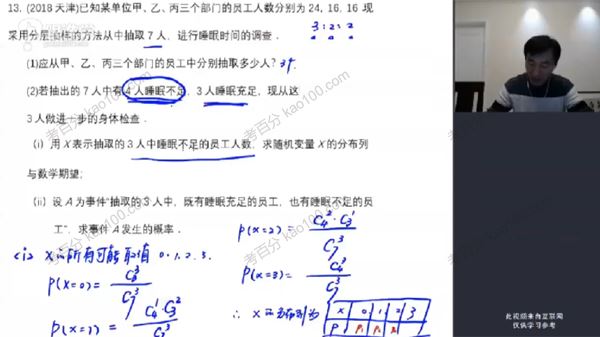 13. (2018 天津)已知某单位甲、乙、丙三个部门的员工人数分别为 24, 16, 16 现
3:2:2
采用分层抽样的方法从中抽取 7 人，进行睡眠时间的调查．
(1)应从甲、乙、丙三个部门的员工中分别抽取多少人？
(2)若抽出的 7 人中有 4 人睡眠不足，3 人睡眠充足，现从这
3 人做进一步的身体检查．
(i) 用 X 表示抽取的 3 人中睡眠不足的员工人数，求随机变量 X 的分布列
与数学期望；
(ii) 设 A 为事件“抽取的 3 人中，既有睡眠充足的员工，也有睡眠不足的员
工”，求事件 A 发生的概率．
(i) X的所有可能取值 0.1.2.3.
P(X=0)= C₃³ / C₇³
P(X=1)= C₄¹·C₃² / C₇³
P(X=2)= C₄²·C₃¹ / C₇³
P(X=3)= C₄³ / C₇³
∴ X的分布列为
X 0 1 2 3
P P₀ P₁
考百分 kao100.com
考百分 kao100.com
考百分 kao100.com
考百分 kao100.com
此视频来自互联网
仅供学习参考